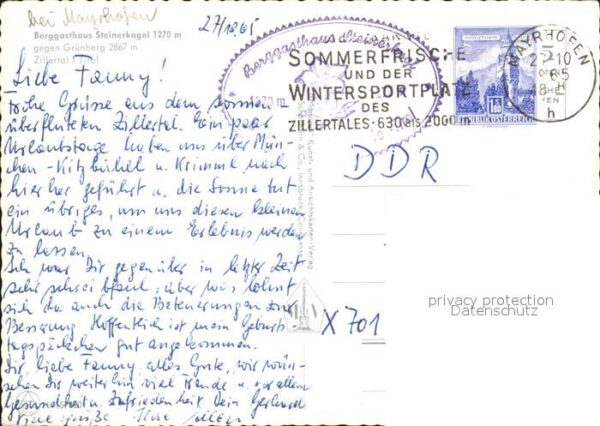 bei Mayrhofen
Berggasthaus Steinerkogel 1270 m
gegen Grünberg 2867 m
Zillertal - Tirol
27/10/65
Liebe Fanny!
Frohe Grüsse aus dem sonnen
überfluteten Zillertal. Ein paar
Urlaubstage haben uns über Mün-
chen - Kitzbühel u. Krimml nach
hierher geführt u. die Sonne tut
ein übriges, um uns diesen kleinen
Urlaub zu einem Erlebnis werden
zu lassen.
Ich war Dir gegenüber in letzter Zeit
sehr schreibfaul; aber was lohnt
sich da auch die Beteuerungen zur
Besserung. Hoffentlich ist mein Geburts
tagspäckchen gut angekommen.
Dir, liebe Fanny, alles Gute, wir wün-
schen Dir weiterhin viel Freude u. vor allem
Gesundheit u. Zufriedenheit Dein Gerhard
Viele Grüße Ihre
Berggasthaus
1270 m
SOMMERFRISCHE
UND DER
WINTERSPORTPLATZ
DES
ZILLERTALES · 630 bis 2000 m
MAYRHOFEN
h
1.80
REPUBLIK ÖSTERREICH
Kunst- und Ansichtskarten-Verlag
& Co., Innsbruck
DDR
X 701
privacy protection
Datenschutz